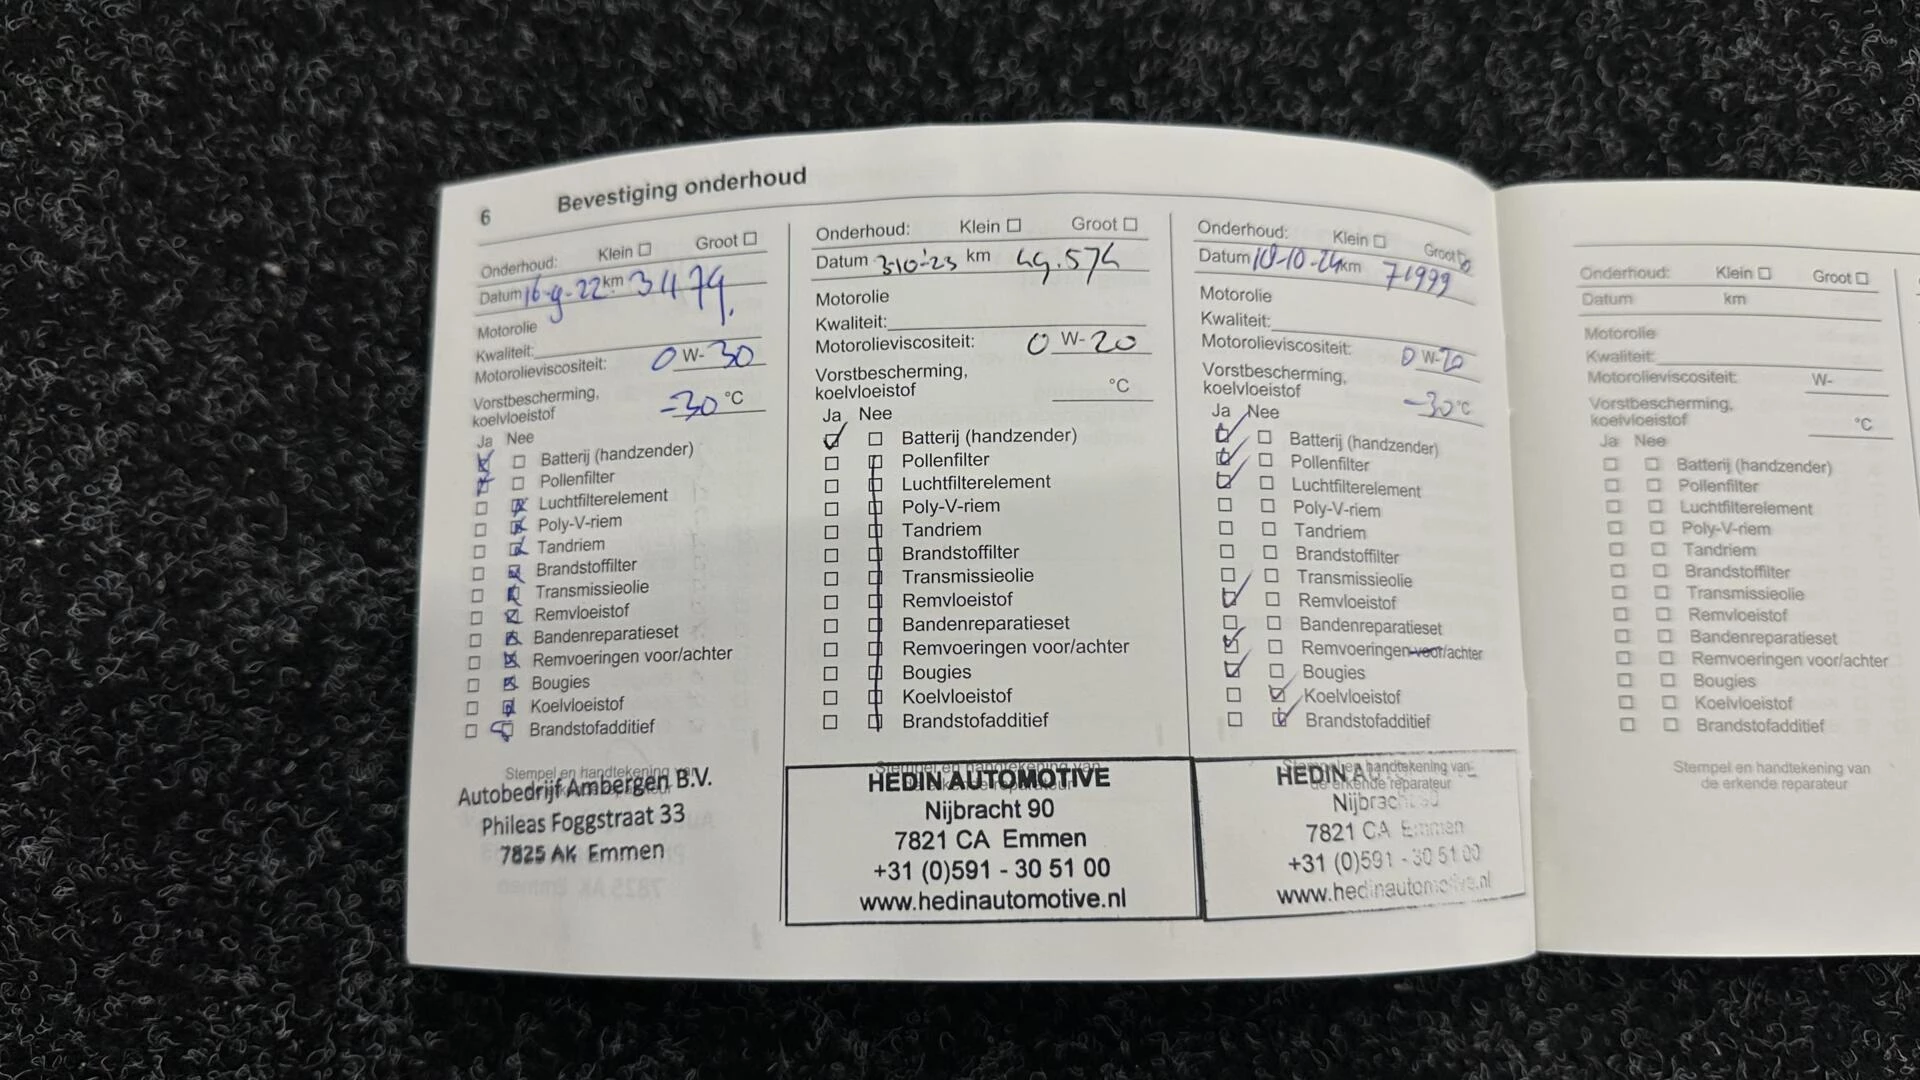 6
Bevestiging onderhoud
Onderhoud: Klein Groot
Datum 16-9-22 km
Motorolie
Kwaliteit:
Motorolieviscositeit: 0 W- 30
Vorstbescherming,
koelvloeistof -30 °C
Ja Nee
Batterij (handzender)
Pollenfilter
Luchtfilterelement
Poly-V-riem
Tandriem
Brandstoffilter
Transmissieolie
Remvloeistof
Bandenreparatieset
Remvoeringen voor/achter
Bougies
Koelvloeistof
Brandstofadditief
Stempel en handtekening van
Autobedrijf Ambergen B.V.
Phileas Foggstraat 33
7825 AK Emmen
Onderhoud: Klein Groot
Datum 3-10-'23 km 49.574
Motorolie
Kwaliteit:
Motorolieviscositeit: 0 W- 20
Vorstbescherming,
koelvloeistof °C
Ja Nee
Batterij (handzender)
Pollenfilter
Luchtfilterelement
Poly-V-riem
Tandriem
Brandstoffilter
Transmissieolie
Remvloeistof
Bandenreparatieset
Remvoeringen voor/achter
Bougies
Koelvloeistof
Brandstofadditief
Stempel en handtekening van
HEDIN AUTOMOTIVE
Nijbracht 90
7821 CA Emmen
+31 (0)591 - 30 51 00
www.hedinautomotive.nl
Onderhoud: Klein Groot
Datum 10-10-24 km 71999
Motorolie
Kwaliteit:
Motorolieviscositeit: 0 W- 20
Vorstbescherming,
koelvloeistof -30 °C
Ja Nee
Batterij (handzender)
Pollenfilter
Luchtfilterelement
Poly-V-riem
Tandriem
Brandstoffilter
Transmissieolie
Remvloeistof
Bandenreparatieset
Remvoeringen voor/achter
Bougies
Koelvloeistof
Brandstofadditief
Stempel en handtekening van
de erkende reparateur
HEDIN
Nijbracht 90
7821 CA Emmen
+31 (0)591 - 30 51 00
www.hedinautomotive.nl
Onderhoud: Klein Groot
Datum km
Motorolie
Kwaliteit:
Motorolieviscositeit: W-
Vorstbescherming,
koelvloeistof °C
Ja Nee
Batterij (handzender)
Pollenfilter
Luchtfilterelement
Poly-V-riem
Tandriem
Brandstoffilter
Transmissieolie
Remvloeistof
Bandenreparatieset
Remvoeringen voor/achter
Bougies
Koelvloeistof
Brandstofadditief
Stempel en handtekening van
de erkende reparateur